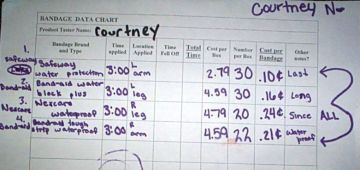 Courtney N.
BANDAGE DATA CHART
Product Tester Name: Courtney
Bandage Brand and Type Time applied Location Applied Time Fell Off Total Time Cost per Box Number per Box Cost per Bandage Other notes?
1. Safeway Safeway water protection 3:00 L arm 2.79 30 .10¢ Last
2. Band-aid Bandaid water block plus 3:00 L leg 4.99 30 .16¢ Long
3. Nexcare Nexcare waterproof 3:00 R leg 4.79 20 .24¢ Since ALL
4. Band-aid Bandaid tough strip waterproof 3:00 R arm 4.59 22 .21¢ water proof